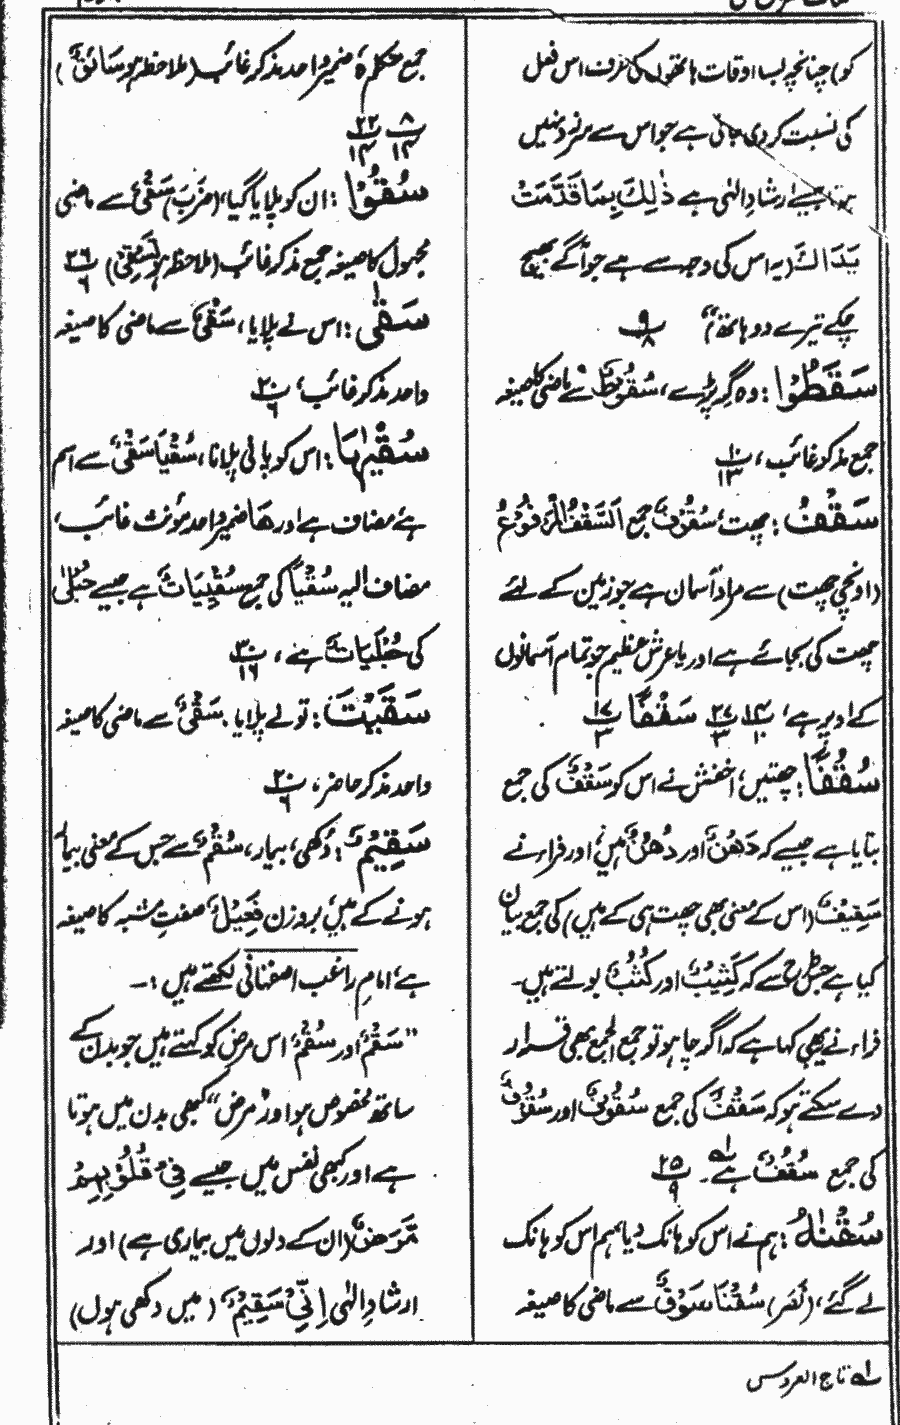 کو) چنانچہ بسا اوقات ہاتھوں کی طرف اس فعل
کی نسبت کر دی جاتی ہے جو اس سے سرزد نہیں
ہوتا جیسے ارشادِ الٰہی ہے ذٰلِكَ بِمَا قَدَّمَتْ
يَدَاكَ (یہ اس کی وجہ سے ہے جو آگے بھیج
چکے تیرے دو ہاتھ) ۹/۸
سَقَطُوْا : وہ گر پڑے، سُقُوْطٌ سے ماضی کا صیغہ
جمع مذکر غائب، ۱۰/۱۳
سَقْفُ : چھت، سُقُوْفٌ جمع اَلسَّقْفُ الْمَرْفُوْعُ
(اونچی چھت) سے مراد آسمان ہے جو زمین کے لئے
چھت کی بجائے ہے اور یا عرش عظیم جو تمام آسمانوں
کے اوپر ہے، ۱۴/۱۰ ۲۷/۳ سَقْفًا ۱۷/۳
سُقُفًا : چھتیں، اخفش نے اس کو سَقْفٌ کی جمع
بتایا ہے جیسے کہ رَهْنٌ اور رُهُنٌ ہیں، اور فراء نے
سَقِيْفٌ (اس کے معنی بھی چھت ہی کے ہیں) کی جمع بیان
کیا ہے جس طرح سے کہ كَثِيْبٌ اور كُثُبٌ بولتے ہیں۔
فراء نے بھی کہا ہے کہ اگر چاہو تو جمع الجمع بھی قرار
دے سکتے ہو کہ سَقْفٌ کی جمع سُقُوْفٌ اور سُقُوْفٌ
کی جمع سُقُفٌ ہے۔ ۱ه ۲۵/۹
سُقْنٰهُ : ہم نے اس کو ہانک دیا ہم اس کو ہانک
لے گئے، (نَصَرَ) سُقْنَا سَوْقٌ سے ماضی کا صیغہ
۱ه تاج العروس
جمع متکلم ہٗ ضمیر واحد مذکر غائب (ملاحظہ ہو سَائِقٌ)
۸/۱۴ ۲۲/۱۴
سُقُوْا : ان کو پلایا گیا، (ضَرَبَ) سَقْیٌ سے ماضی
مجہول کا صیغہ جمع مذکر غائب (ملاحظہ ہو تَسْقِیْ) ۲۶/۶
سَقٰی : اس نے پلایا، سَقْیٌ سے ماضی کا صیغہ
واحد مذکر غائب، ۲۰/۶
سُقْیٰهَا : اس کو پانی پلانا، سُقْیَا سَقْیٌ سے اسم
ہے، مضاف ہے اور هَا ضمیر واحد مؤنث غائب،
مضاف الیہ سُقْیَا کی جمع سُقْیَیَاتٌ ہے جیسے حُبْلٰی
کی حُبْلَیَاتٌ ہے، ۳۰/۱۶
سَقَیْتَ : تو نے پلایا، سَقْیٌ سے ماضی کا صیغہ
واحد مذکر حاضر، ۲۰/۶
سَقِیْمٌ : دُکھی، بیمار، سُقْمٌ سے جس کے معنی بیمار
ہونے کے ہیں، بروزن فَعِیْلٌ صفتِ مشبہ کا صیغہ
ہے، امامِ راغب اصفہانی لکھتے ہیں :۔
"سَقَمٌ اور سُقْمٌ اس مرض کو کہتے ہیں جو بدن کے
ساتھ مخصوص ہو اور "مرض" کبھی بدن میں ہوتا
ہے اور کبھی نفس میں جیسے فِیْ قُلُوْبِهِمْ
مَّرَضٌ (ان کے دلوں میں بیماری ہے) اور
ارشادِ الٰہی اِنِّیْ سَقِیْمٌ (میں دکھی ہوں)